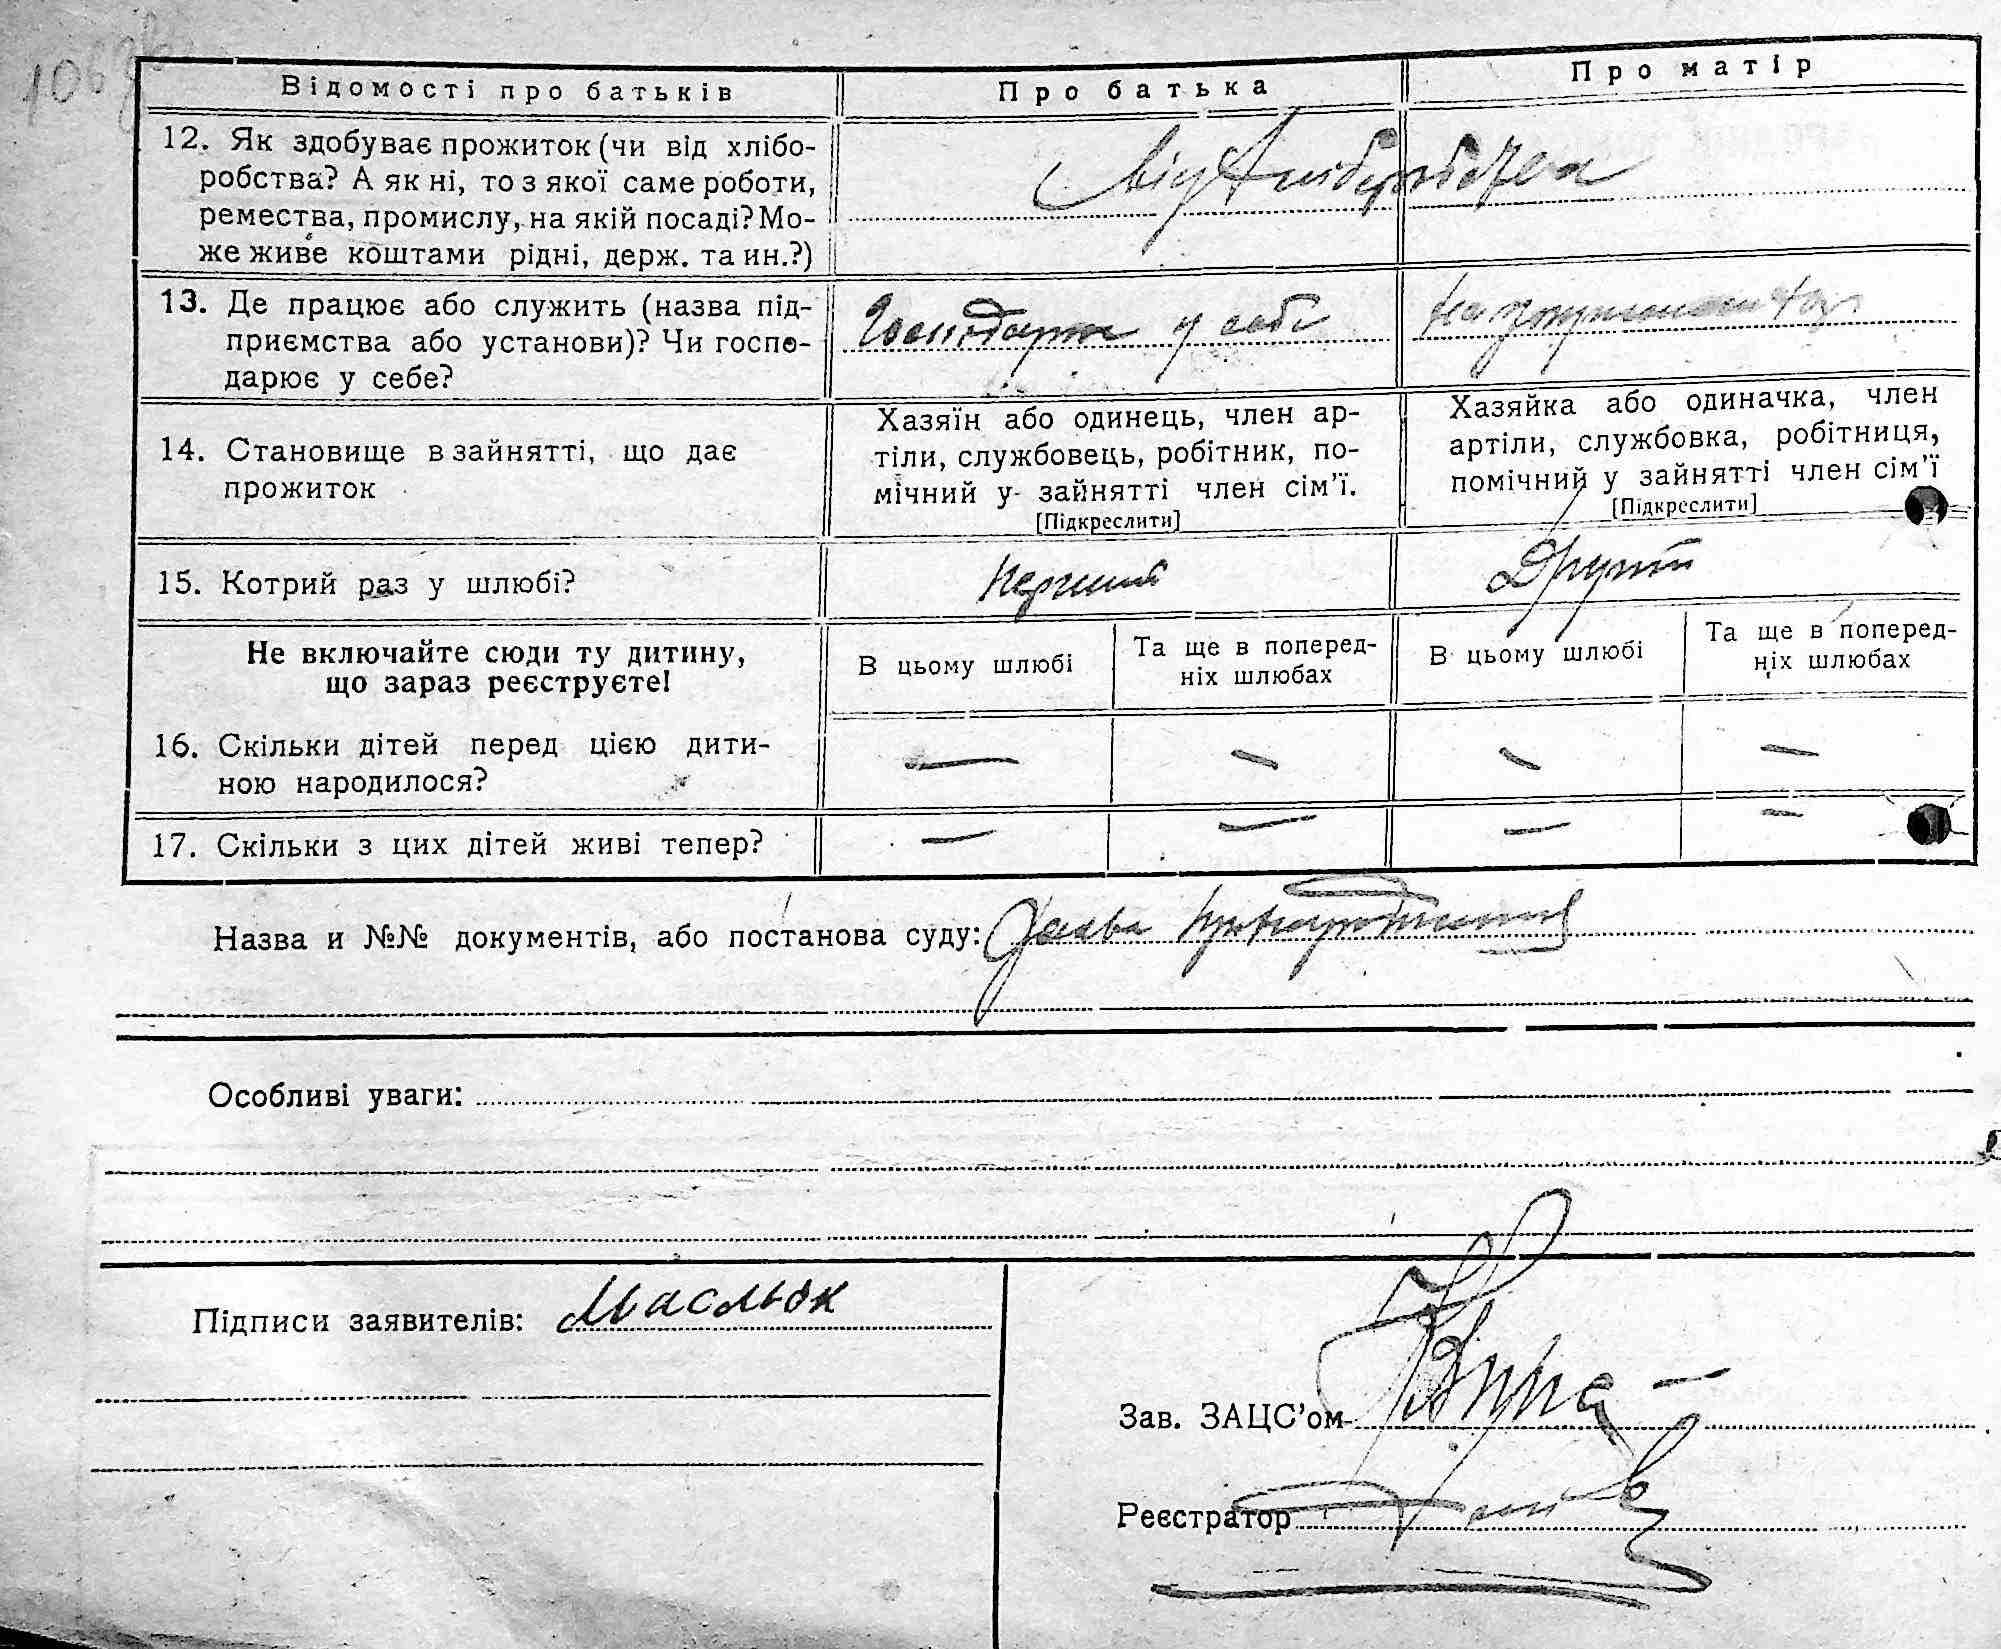 Відомості про батьків
Про батька
Про матір
12. Як здобуває прожиток (чи від хлібо-
робства? А як ні, то з якої саме роботи,
ремества, промислу, на якій посаді? Мо-
же живе коштами рідні, держ. та ин.?)
від хліборобства
13. Де працює або служить (назва під-
приємства або установи)? Чи госпо-
дарює у себе?
Господарює у себе
на утриманні
14. Становище в зайнятті, що дає
прожиток
Хазяїн або одинець, член ар-
тіли, службовець, робітник, по-
мічний у зайнятті член сім’ї.
[Підкреслити]
Хазяйка або одиначка, член
артіли, службовка, робітниця,
помічний у зайнятті член сім’ї
[Підкреслити]
15. Котрий раз у шлюбі?
перший
Другий
Не включайте сюди ту дитину,
що зараз реєструєте!
В цьому шлюбі
Та ще в поперед-
ніх шлюбах
В цьому шлюбі
Та ще в поперед-
ніх шлюбах
16. Скільки дітей перед цією дити-
ною народилося?
— — — —
17. Скільки з цих дітей живі тепер?
— — — —
Назва и №№ документів, або постанова суду:
Особливі уваги:
Підписи заявителів: Масльок
Зав. ЗАЦС’ом
Реєстратор